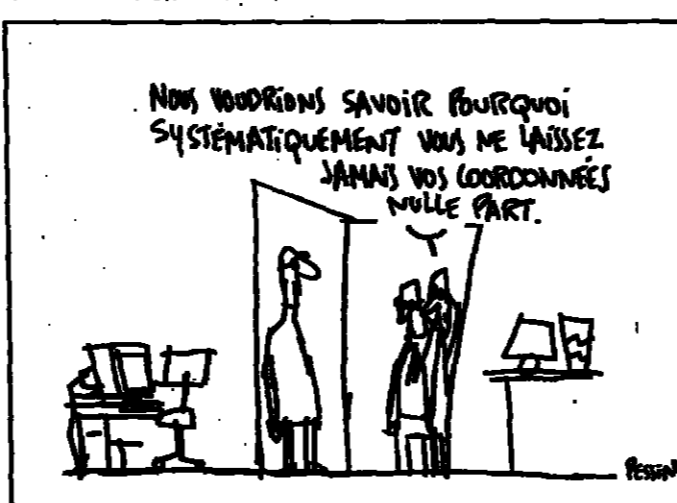 NOUS VOUDRIONS SAVOIR POURQUOI
SYSTÉMATIQUEMENT VOUS NE LAISSEZ
JAMAIS VOS COORDONNÉES
NULLE PART.
PESSIN